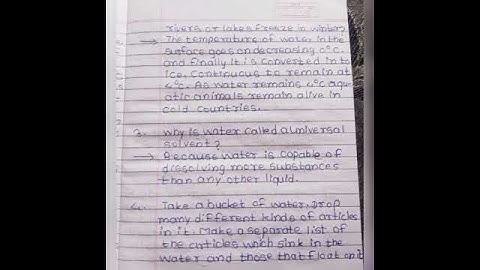 rivers or lakes freeze in winter?
→ The temperature of water in the
surface goes on decreasing 0°c.
and finally It is converted in to
Ice. Continuous to remain at
4°c. As water remains 4°c aqu-
atic animals remain alive in
cold countries.
3. why is water called a universal
solvent?
→ Because water is capable of
dissolving more substances
than any other liquid.
4. Take a bucket of water, Drop
many different kinds of articles
in it. Make a separate list of
the articles which sink in the
water and those that float on it